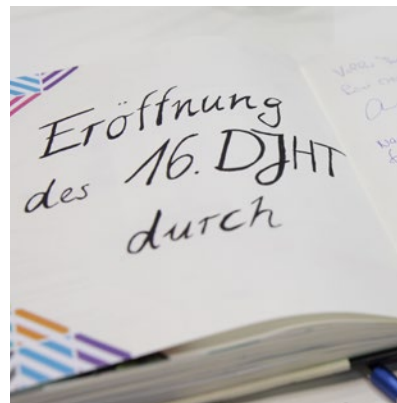 Eröffnung
des 16. DJHT
durch